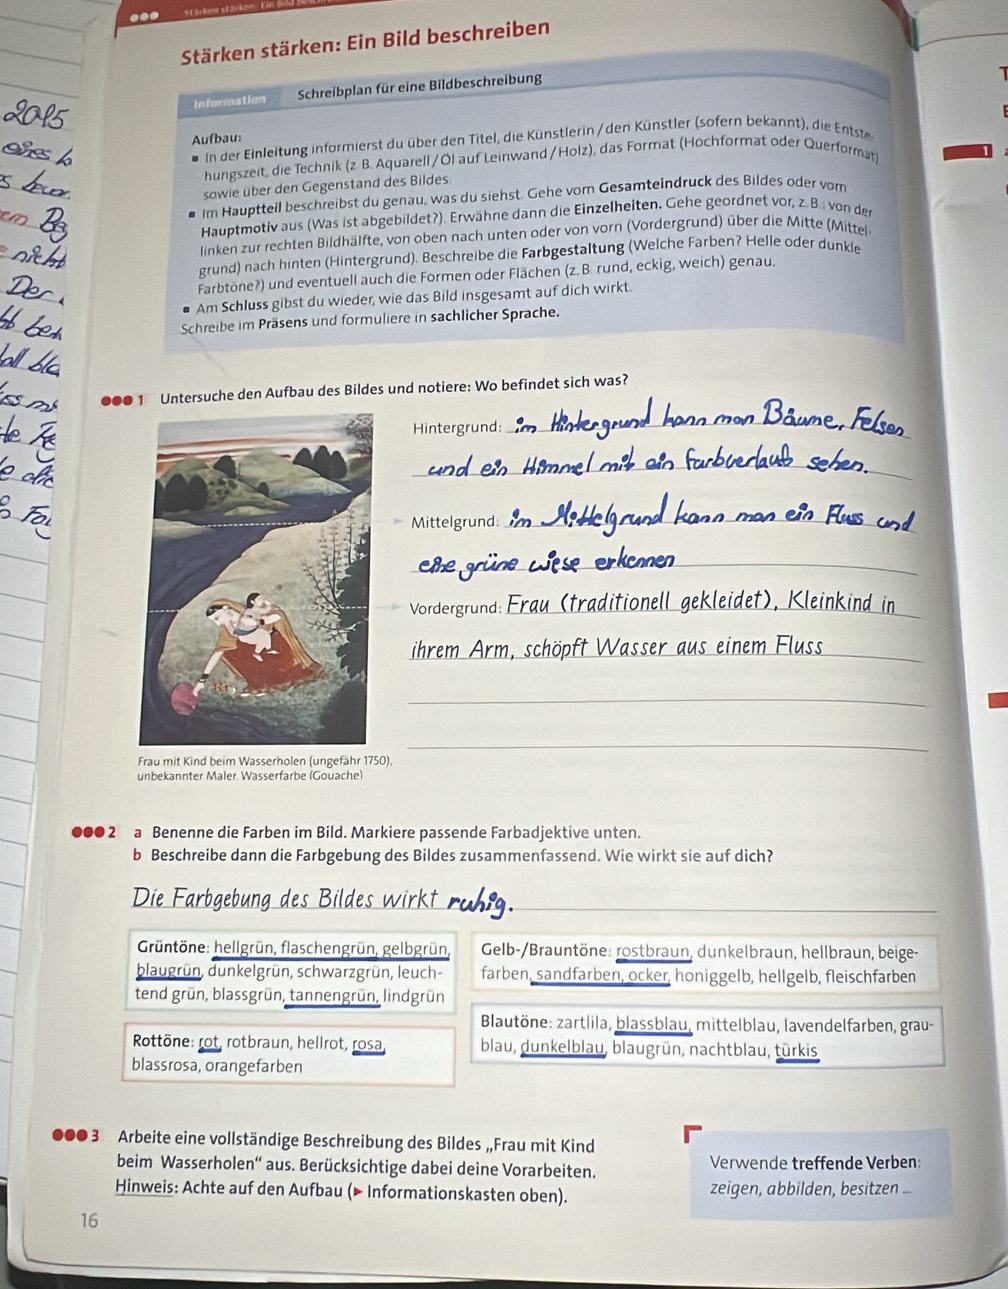 Stärken stärken: Ein Bild
Stärken stärken: Ein Bild beschreiben
Information Schreibplan für eine Bildbeschreibung
Aufbau:
In der Einleitung informierst du über den Titel, die Künstlerin/den Künstler (sofern bekannt), die Entste-
hungszeit, die Technik (z. B. Aquarell/Öl auf Leinwand/Holz), das Format (Hochformat oder Querformat)
sowie über den Gegenstand des Bildes.
Im Hauptteil beschreibst du genau, was du siehst. Gehe vom Gesamteindruck des Bildes oder vom
Hauptmotiv aus (Was ist abgebildet?). Erwähne dann die Einzelheiten. Gehe geordnet vor, z. B. von der
linken zur rechten Bildhälfte, von oben nach unten oder von vorn (Vordergrund) über die Mitte (Mittel-
grund) nach hinten (Hintergrund). Beschreibe die Farbgestaltung (Welche Farben? Helle oder dunkle
Farbtöne?) und eventuell auch die Formen oder Flächen (z. B. rund, eckig, weich) genau.
Am Schluss gibst du wieder, wie das Bild insgesamt auf dich wirkt.
Schreibe im Präsens und formuliere in sachlicher Sprache.
1 Untersuche den Aufbau des Bildes und notiere: Wo befindet sich was?
Hintergrund: im Hintergrund kann man Bäume, Felsen
und ein Himmel mit ein farbverlauf sehen.
Mittelgrund: im Mittelgrund kann man ein Fluss und
eine grüne wiese erkennen
Vordergrund: Frau (traditionell gekleidet), Kleinkind in
ihrem Arm, schöpft Wasser aus einem Fluss
Frau mit Kind beim Wasserholen (ungefähr 1750),
unbekannter Maler. Wasserfarbe (Gouache)
2 a Benenne die Farben im Bild. Markiere passende Farbadjektive unten.
b Beschreibe dann die Farbgebung des Bildes zusammenfassend. Wie wirkt sie auf dich?
Die Farbgebung des Bildes wirkt ruhig.
Grüntöne: hellgrün, flaschengrün, gelbgrün,
blaugrün, dunkelgrün, schwarzgrün, leuch-
tend grün, blassgrün, tannengrün, lindgrün
Gelb-/Brauntöne: rostbraun, dunkelbraun, hellbraun, beige-
farben, sandfarben, ocker, honiggelb, hellgelb, fleischfarben
Rottöne: rot, rotbraun, hellrot, rosa,
blassrosa, orangefarben
Blautöne: zartlila, blassblau, mittelblau, lavendelfarben, grau-
blau, dunkelblau, blaugrün, nachtblau, türkis
3 Arbeite eine vollständige Beschreibung des Bildes „Frau mit Kind
beim Wasserholen“ aus. Berücksichtige dabei deine Vorarbeiten.
Hinweis: Achte auf den Aufbau (▶ Informationskasten oben).
Verwende treffende Verben:
zeigen, abbilden, besitzen ...
16
1